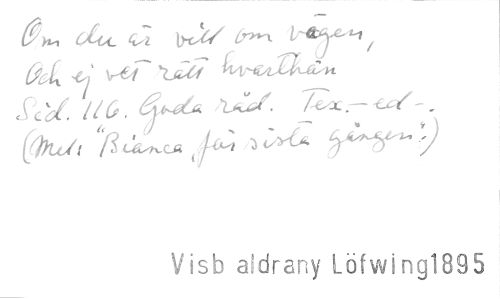 Om du är vill om vägen,
Och ej vet rätt hvarthän
Sid. 116. Goda råd. Tex.-ed-.
(Mel: "Bianca för sista gången".)
Visb aldrany Löfwing1895